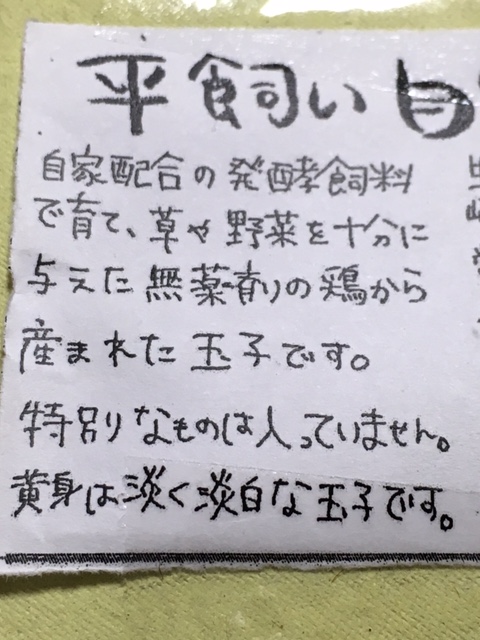 平飼い
自家配合の発酵飼料
で育て、草や野菜を十分に
与えた無薬育ちの鶏から
産まれた玉子です。
特別なものは入っていません。
黄身は淡く淡白な玉子です。